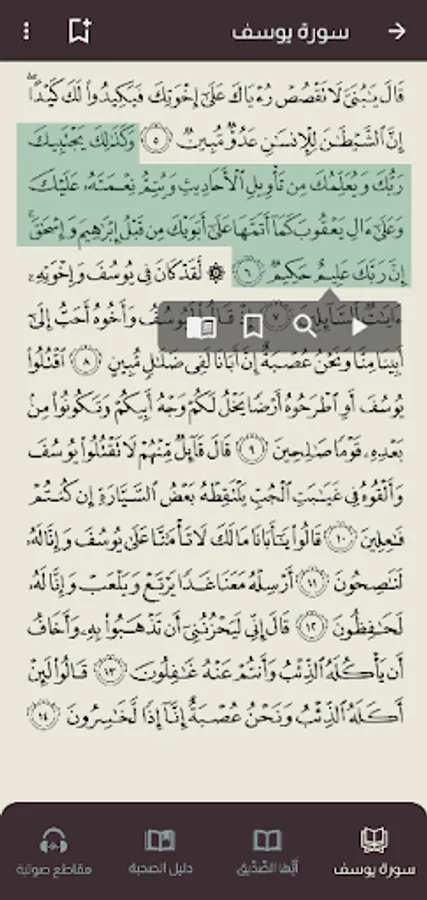 سورة يوسف
قَالَ يَٰبُنَىَّ لَا تَقْصُصْ رُءْيَاكَ عَلَىٰٓ إِخْوَتِكَ فَيَكِيدُوا۟ لَكَ كَيْدًا ۖ
إِنَّ ٱلشَّيْطَٰنَ لِلْإِنسَٰنِ عَدُوٌّ مُّبِينٌ ٥ وَكَذَٰلِكَ يَجْتَبِيكَ
رَبُّكَ وَيُعَلِّمُكَ مِن تَأْوِيلِ ٱلْأَحَادِيثِ وَيُتِمُّ نِعْمَتَهُۥ عَلَيْكَ
وَعَلَىٰٓ ءَالِ يَعْقُوبَ كَمَآ أَتَمَّهَا عَلَىٰٓ أَبَوَيْكَ مِن قَبْلُ إِبْرَٰهِيمَ وَإِسْحَٰقَ ۚ
إِنَّ رَبَّكَ عَلِيمٌ حَكِيمٌ ٦ ۞ لَّقَدْ كَانَ فِى يُوسُفَ وَإِخْوَتِهِۦٓ
ءَايَٰتٌ لِّلسَّآئِلِينَ ٧ إِذْ قَالُوا۟ لَيُوسُفُ وَأَخُوهُ أَحَبُّ إِلَىٰٓ
أَبِينَا مِنَّا وَنَحْنُ عُصْبَةٌ إِنَّ أَبَانَا لَفِى ضَلَٰلٍ مُّبِينٍ ٨ ٱقْتُلُوا۟
يُوسُفَ أَوِ ٱطْرَحُوهُ أَرْضًا يَخْلُ لَكُمْ وَجْهُ أَبِيكُمْ وَتَكُونُوا۟ مِنۢ
بَعْدِهِۦ قَوْمًا صَٰلِحِينَ ٩ قَالَ قَآئِلٌ مِّنْهُمْ لَا تَقْتُلُوا۟ يُوسُفَ
وَأَلْقُوهُ فِى غَيَٰبَتِ ٱلْجُبِّ يَلْتَقِطْهُ بَعْضُ ٱلسَّيَّارَةِ إِن كُنتُمْ
فَٰعِلِينَ ١٠ قَالُوا۟ يَٰٓأَبَانَا مَا لَكَ لَا تَأْمَ۫نَّا عَلَىٰ يُوسُفَ وَإِنَّا لَهُۥ
لَنَٰصِحُونَ ١١ أَرْسِلْهُ مَعَنَا غَدًا يَرْتَعْ وَيَلْعَبْ وَإِنَّا لَهُۥ
لَحَٰفِظُونَ ١٢ قَالَ إِنِّى لَيَحْزُنُنِىٓ أَن تَذْهَبُوا۟ بِهِۦ وَأَخَافُ
أَن يَأْكُلَهُ ٱلذِّئْبُ وَأَنتُمْ عَنْهُ غَٰفِلُونَ ١٣ قَالُوا۟ لَئِنْ
أَكَلَهُ ٱلذِّئْبُ وَنَحْنُ عُصْبَةٌ إِنَّآ إِذًا لَّخَٰسِرُونَ ١٤
سورة يوسف أيها الصديق دليل الصحبة مقاطع صوتية